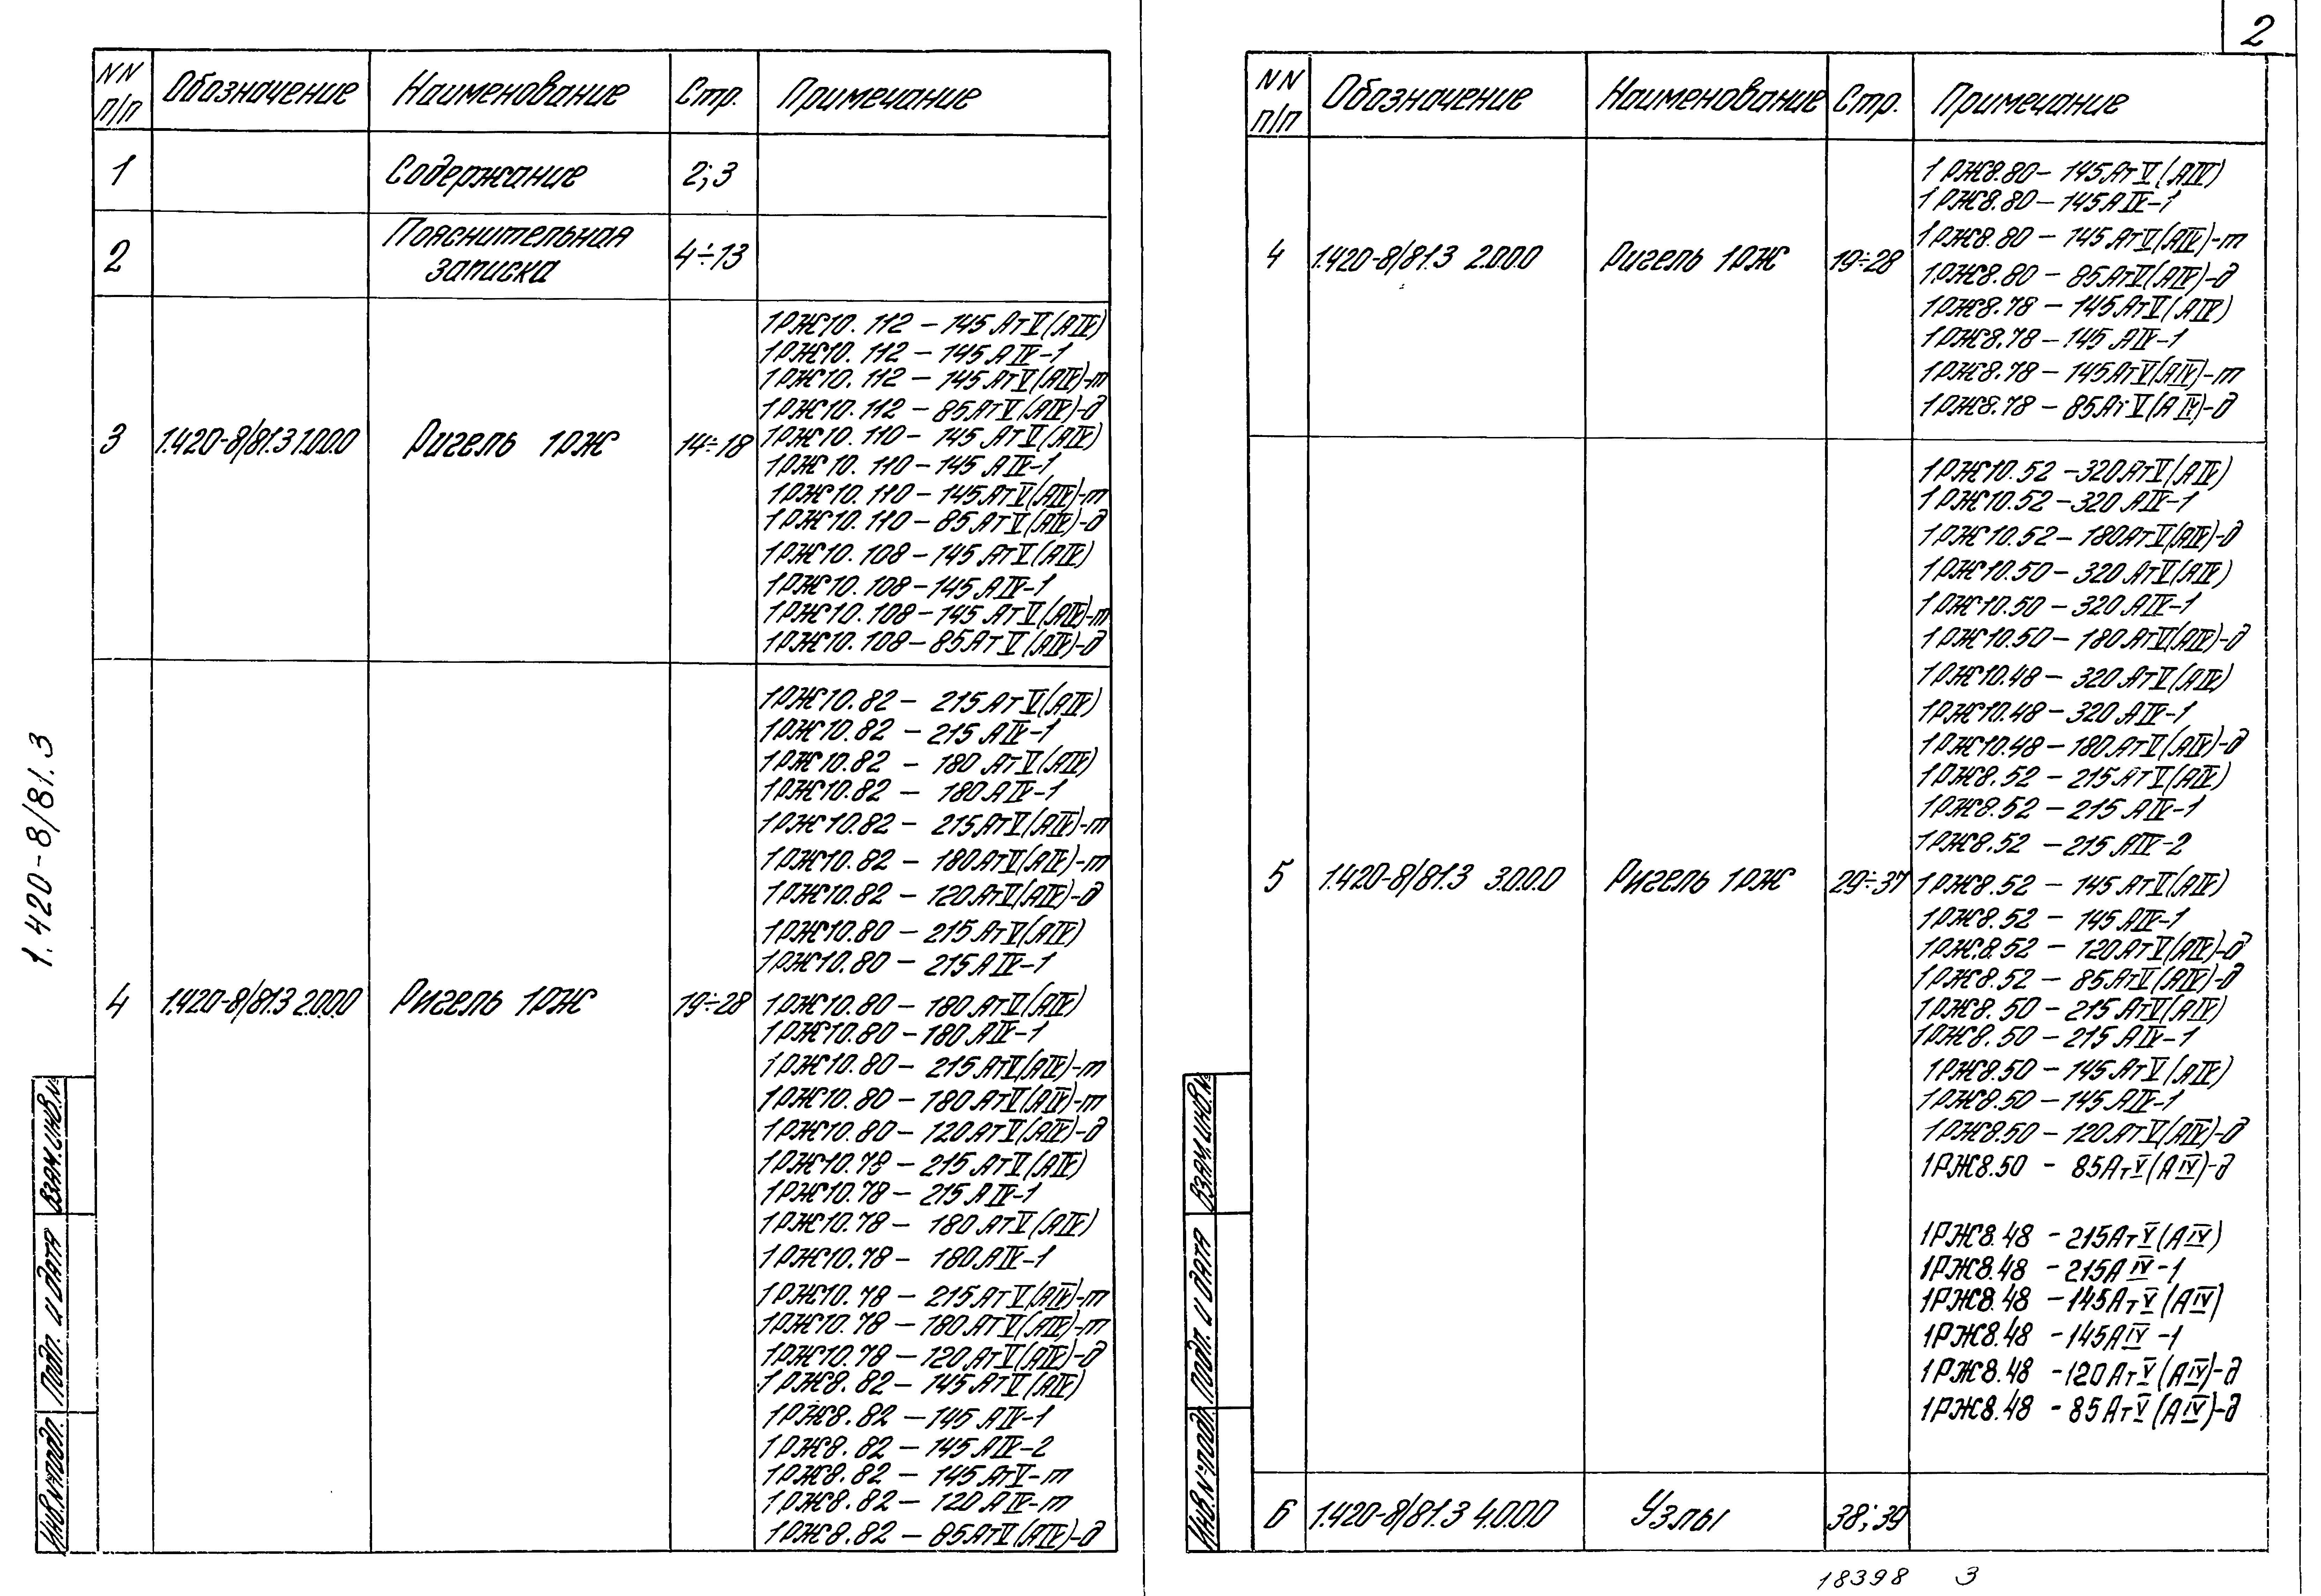 2
NN п/п Обозначение Наименование Стр. Примечание
1 Содержание 2;3
2 Пояснительная записка 4÷13
3 1.420-8/81.3 1.0.0.0 Ригель 1РЖ 14÷18
1РЖ10.112 – 145 АтV(АIV)
1РЖ10.112 – 145 АIV-1
1РЖ10.112 – 145 АтV(АIV)-т
1РЖ10.112 – 85АтV(АIV)-д
1РЖ10.110 – 145 АтV(АIV)
1РЖ10.110 – 145 АIV-1
1РЖ10.110 – 145АтV(АIV)-т
1РЖ10.110 – 85 АтV(АIV)-д
1РЖ10.108 – 145 АтV(АIV)
1РЖ10.108 – 145 АIV-1
1РЖ10.108 – 145 АтV(АIV)-т
1РЖ10.108 – 85АтV(АIV)-д
4 1.420-8/81.3 2.0.0.0 Ригель 1РЖ 19÷28
1РЖ10.82 – 215АтV(АIV)
1РЖ10.82 – 215 АIV-1
1РЖ10.82 – 180 АтV(АIV)
1РЖ10.82 – 180АIV-1
1РЖ10.82 – 215АтV(АIV)-т
1РЖ10.82 – 180АтV(АIV)-т
1РЖ10.82 – 120АтV(АIV)-д
1РЖ10.80 – 215АтV(АIV)
1РЖ10.80 – 215АIV-1
1РЖ10.80 – 180 АтV(АIV)
1РЖ10.80 – 180 АIV-1
1РЖ10.80 – 215 АтV(АIV)-т
1РЖ10.80 – 180АтV(АIV)-т
1РЖ10.80 – 120АтV(АIV)-д
1РЖ10.78 – 215 АтV(АIV)
1РЖ10.78 – 215 АIV-1
1РЖ10.78 – 180 АтV(АIV)
1РЖ10.78 – 180АIV-1
1РЖ10.78 – 215АтV(АIV)-т
1РЖ10.78 – 180 АтV(АIV)-т
1РЖ10.78 – 120АтV(АIV)-д
1РЖ8.82 – 145 АтV(АIV)
1РЖ8.82 – 145 АIV-1
1РЖ8.82 – 145 АIV-2
1РЖ8.82 – 145 АтV-т
1РЖ8.82 – 120 АIV-т
1РЖ8.82 – 85АтV(АIV)-д
1.420-8/81.3
Взам.инв.№
Подп. и дата
Инв.№подл.
NN п/п Обозначение Наименование Стр. Примечание
4 1.420-8/81.3 2.0.0.0 Ригель 1РЖ 19÷28
1РЖ8.80 – 145АтV(АIV)
1РЖ8.80 – 145АIV-1
1РЖ8.80 – 145АтV(АIV)-т
1РЖ8.80 – 85АтV(АIV)-д
1РЖ8.78 – 145АтV(АIV)
1РЖ8.78 – 145 АIV-1
1РЖ8.78 – 145АтV(АIV)-т
1РЖ8.78 – 85АтV(АIV)-д
5 1.420-8/81.3 3.0.0.0 Ригель 1РЖ 29÷37
1РЖ10.52 – 320АтV(АIV)
1РЖ10.52 – 320 АIV-1
1РЖ10.52 – 180АтV(АIV)-д
1РЖ10.50 – 320 АтV(АIV)
1РЖ10.50 – 320 АIV-1
1РЖ10.50 – 180 АтV(АIV)-д
1РЖ10.48 – 320 АтV(АIV)
1РЖ10.48 – 320 АIV-1
1РЖ10.48 – 180АтV(АIV)-д
1РЖ8.52 – 215АтV(АIV)
1РЖ8.52 – 215 АIV-1
1РЖ8.52 – 215 АIV-2
1РЖ8.52 – 145 АтV(АIV)
1РЖ8.52 – 145 АIV-1
1РЖ8.52 – 120АтV(АIV)-д
1РЖ8.52 – 85АтV(АIV)-д
1РЖ8.50 – 215 АтV(АIV)
1РЖ8.50 – 215 АIV-1
1РЖ8.50 – 145 АтV(АIV)
1РЖ8.50 – 145АIV-1
1РЖ8.50 – 120АтV(АIV)-д
1РЖ8.50 - 85АтV(АIV)-д
1РЖ8.48 - 215АтV(АIV)
1РЖ8.48 - 215АIV-1
1РЖ8.48 - 145АтV(АIV)
1РЖ8.48 - 145АIV-1
1РЖ8.48 - 120АтV(АIV)-д
1РЖ8.48 - 85АтV(АIV)-д
6 1.420-8/81.3 4.0.0.0 Узлы 38;39
Взам.инв.№
Подп. и дата
Инв.№подл.
18398 3